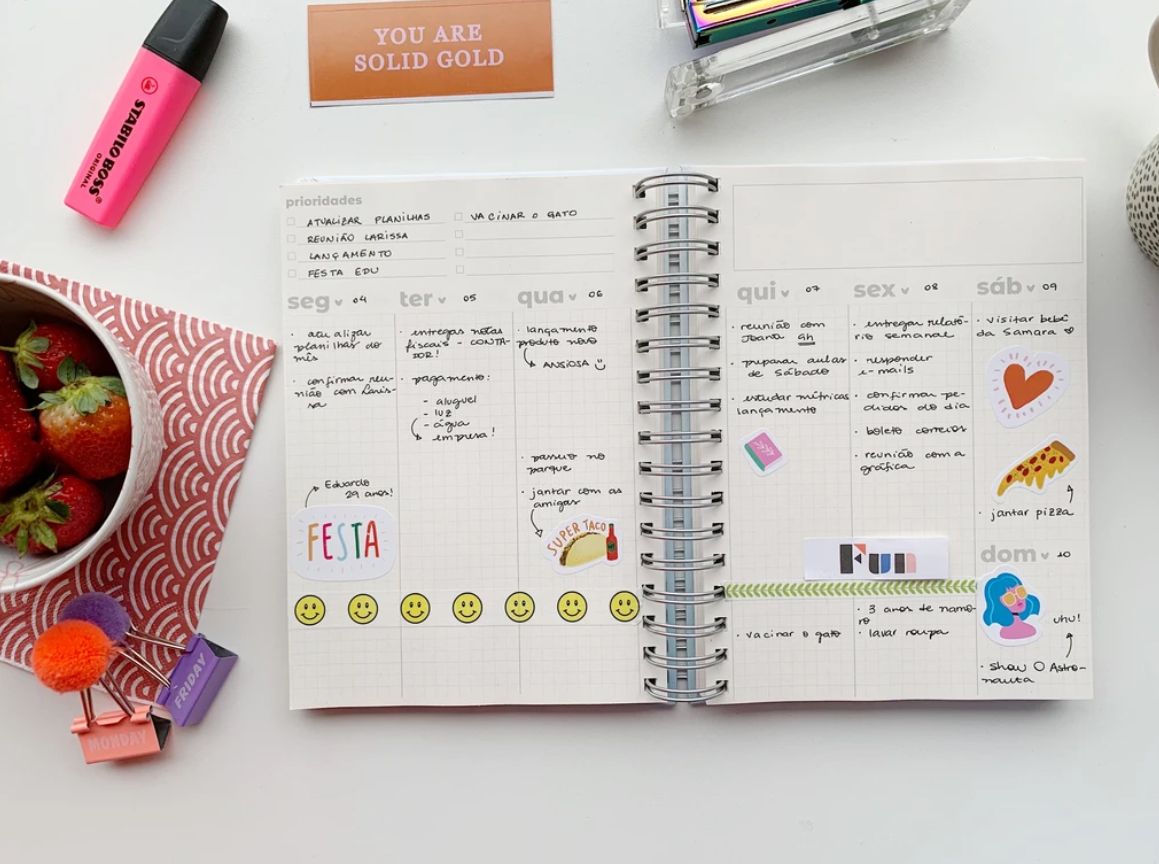 STABILO BOSS
ORIGINAL
YOU ARE
SOLID GOLD
prioridades
ATUALIZAR PLANILHAS
REUNIÃO LARISSA
LANÇAMENTO
FESTA EDU
VACINAR O GATO
seg 04
· atualizar
planilhas do
mês
· confirmar reu-
nião com Laris-
sa
Eduardo
29 anos!
FESTA
ter 05
· entregas notas
fiscais - CONTA-
DOR!
· pagamento:
- aluguel
- luz
- água
empresa!
qua 06
· lançamento
produto novo
ANSIOSA
· passeio no
parque
· jantar com as
amigas
SUPER TACO
qui 07
· reunião com
Joana 9h
· preparar aulas
de Sábado
· estudar métricas
lançamento
· vacinar o gato
sex 08
· entregar relató-
rio semanal
· responder
e-mails
· confirmar pe-
didos do dia
· boleto correios
· reunião com a
gráfica
Fun
· 3 anos de namo-
ro
· lavar roupa
sáb 09
· visitar bebê
da Samara
· jantar pizza
dom 10
uhu!
· show O Astro-
nauta
FRIDAY
MONDAY